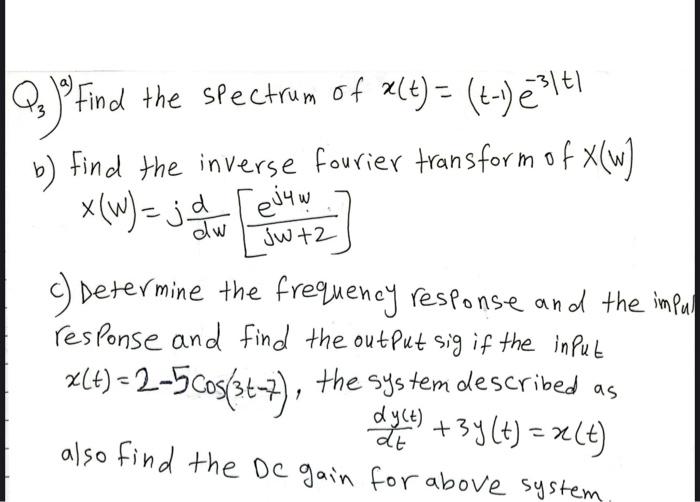 Q3) a) Find the spectrum of x(t) = (t-1) e^-3|t|
b) find the inverse fourier transform of X(w)
X(w) = j d/dw [e^j4w / jw+2]
c) Determine the frequency response and the impul
response and find the output sig if the input
x(t) = 2-5cos(3t-7), the system described as
dy(t)/dt + 3y(t) = x(t)
also find the DC gain for above system.